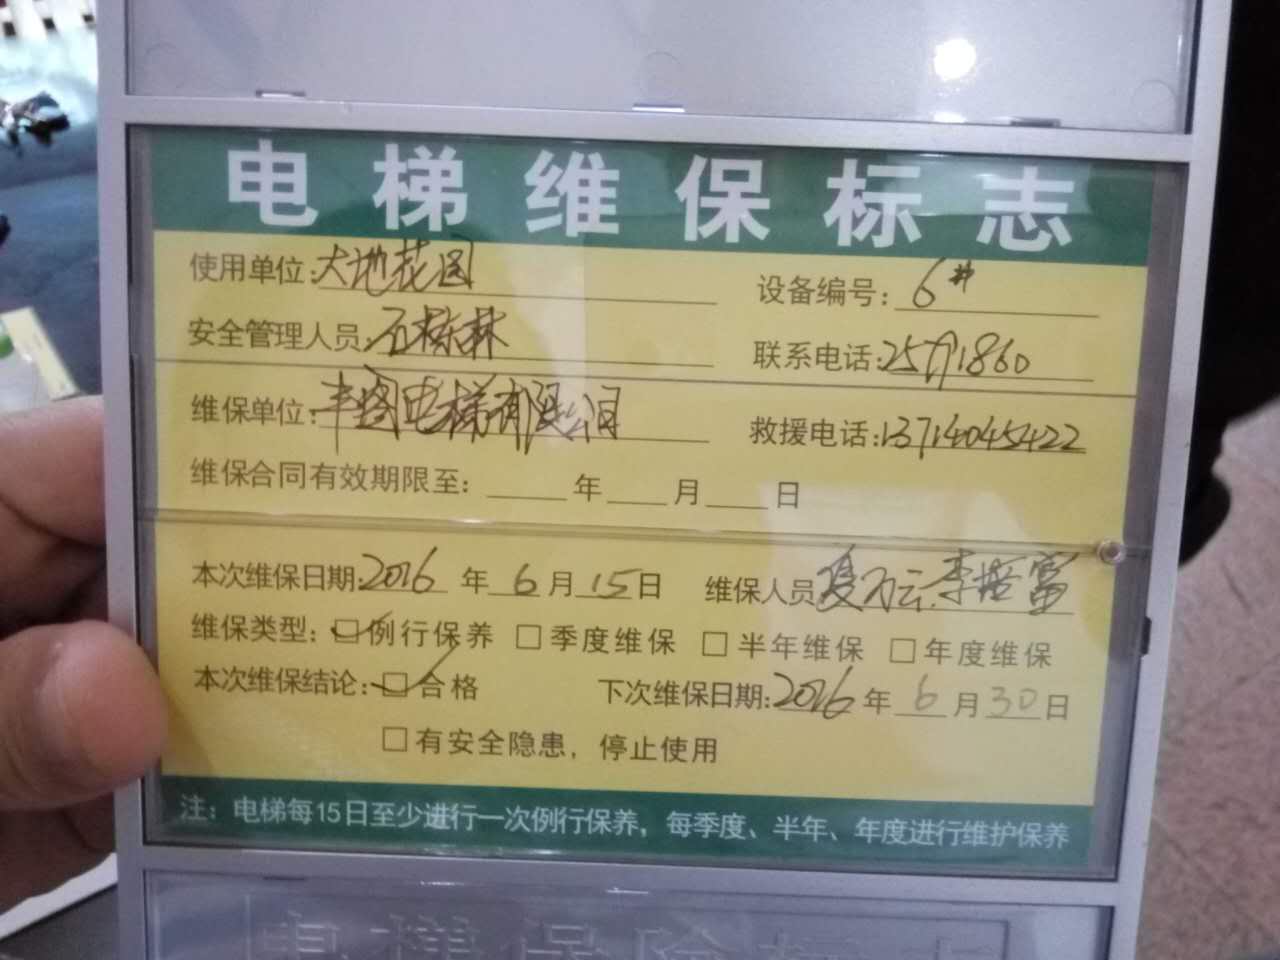 电梯维保标志
使用单位:大地花园 设备编号: 6#
安全管理人员:石栋林 联系电话:25791860
维保单位:丰图电梯有限公司 救援电话:13714045422
维保合同有效期限至: 年 月 日
本次维保日期:2016年6月15日 维保人员 李培富
维保类型: □例行保养 □季度维保 □半年维保 □年度维保
本次维保结论: □合格 下次维保日期:2016年6月30日
□有安全隐患, 停止使用
注: 电梯每15日至少进行一次例行保养, 每季度、半年、年度进行维护保养